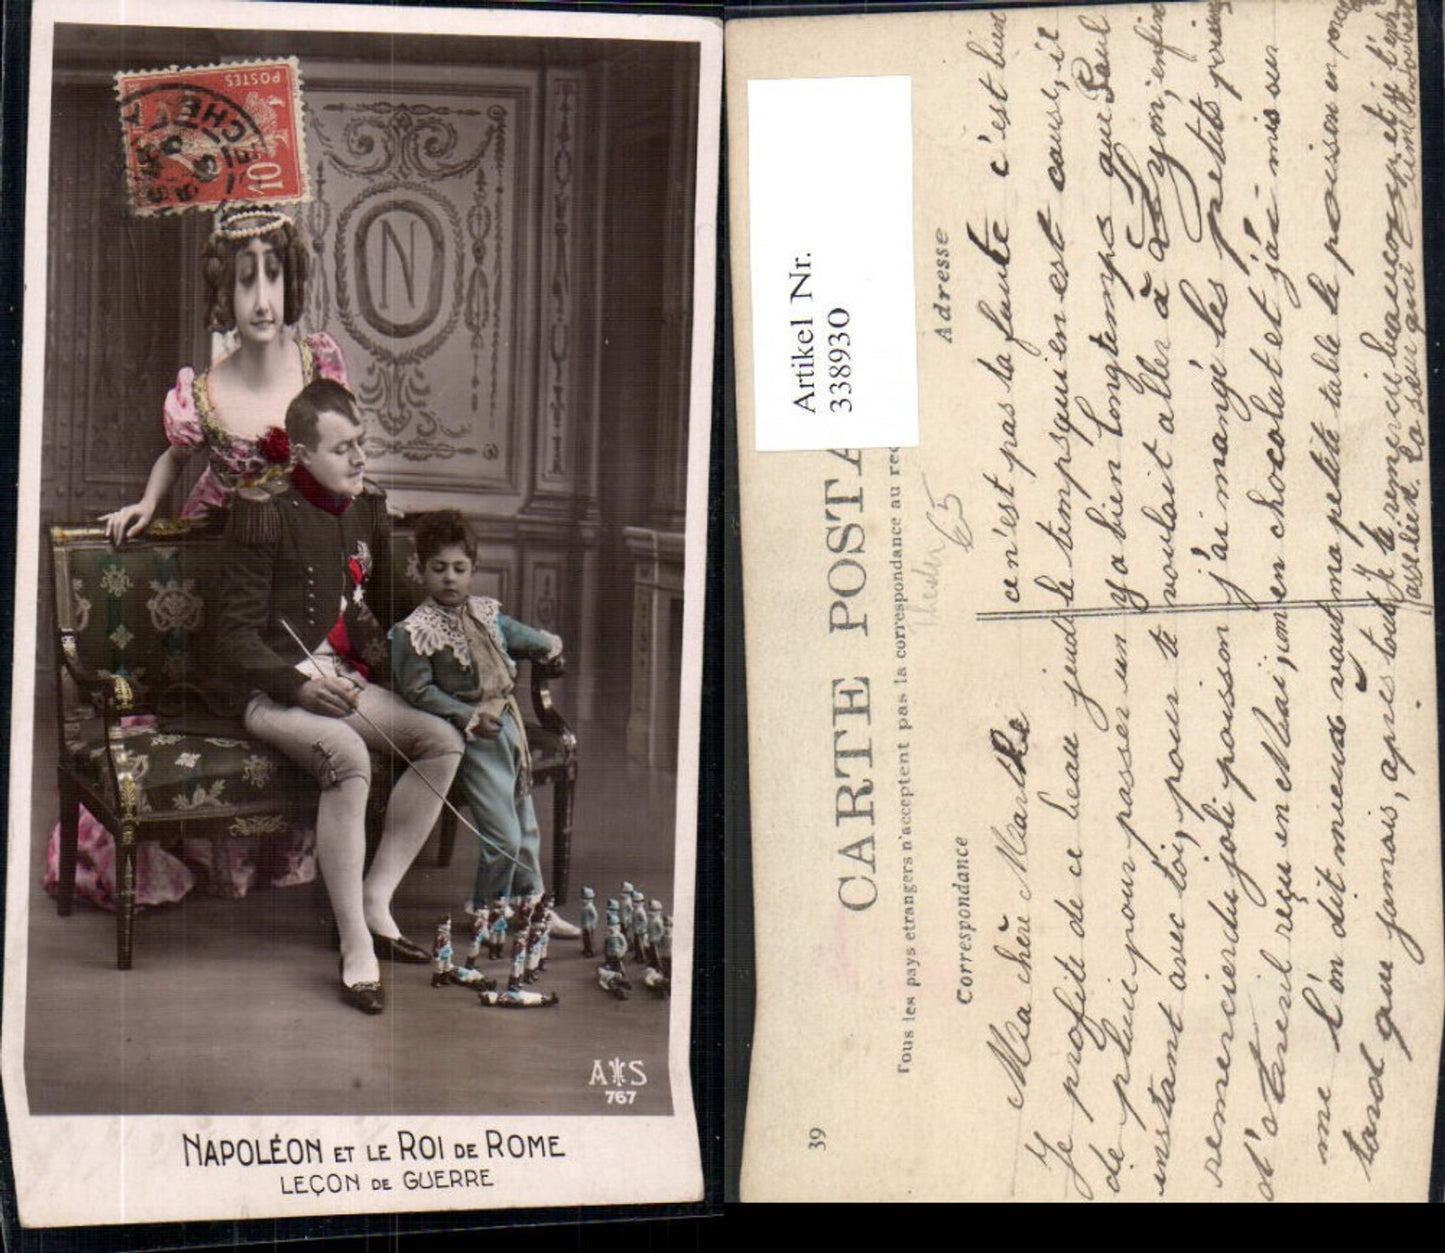 POSTES
10
N
A S
767
NAPOLÉON ET LE ROI DE ROME
LEÇON DE GUERRE
Artikel Nr.
338930
CARTE POSTA
Tous les pays etrangers n'acceptent pas la correspondance au rec
Correspondance
Adresse
39
65
Ma chère Marthe ce n'est pas ta faute c'est bien
Je profite de ce beau jeudi le temps qui en est cause, il
de pluie pour passer un y a bien longtemps que Paul
instant avec toi, pour te voulait aller à Lyon, enfin
remercier du joli poisson j'ai mangé les petits poissons
d'avril reçu en Mai, mon en chocolat et j'ai mis sur
me l'on dit mieux vaut ma petite table le poisson en
tard que jamais, après tout Je te remercie beaucoup, et
ta sœur qui